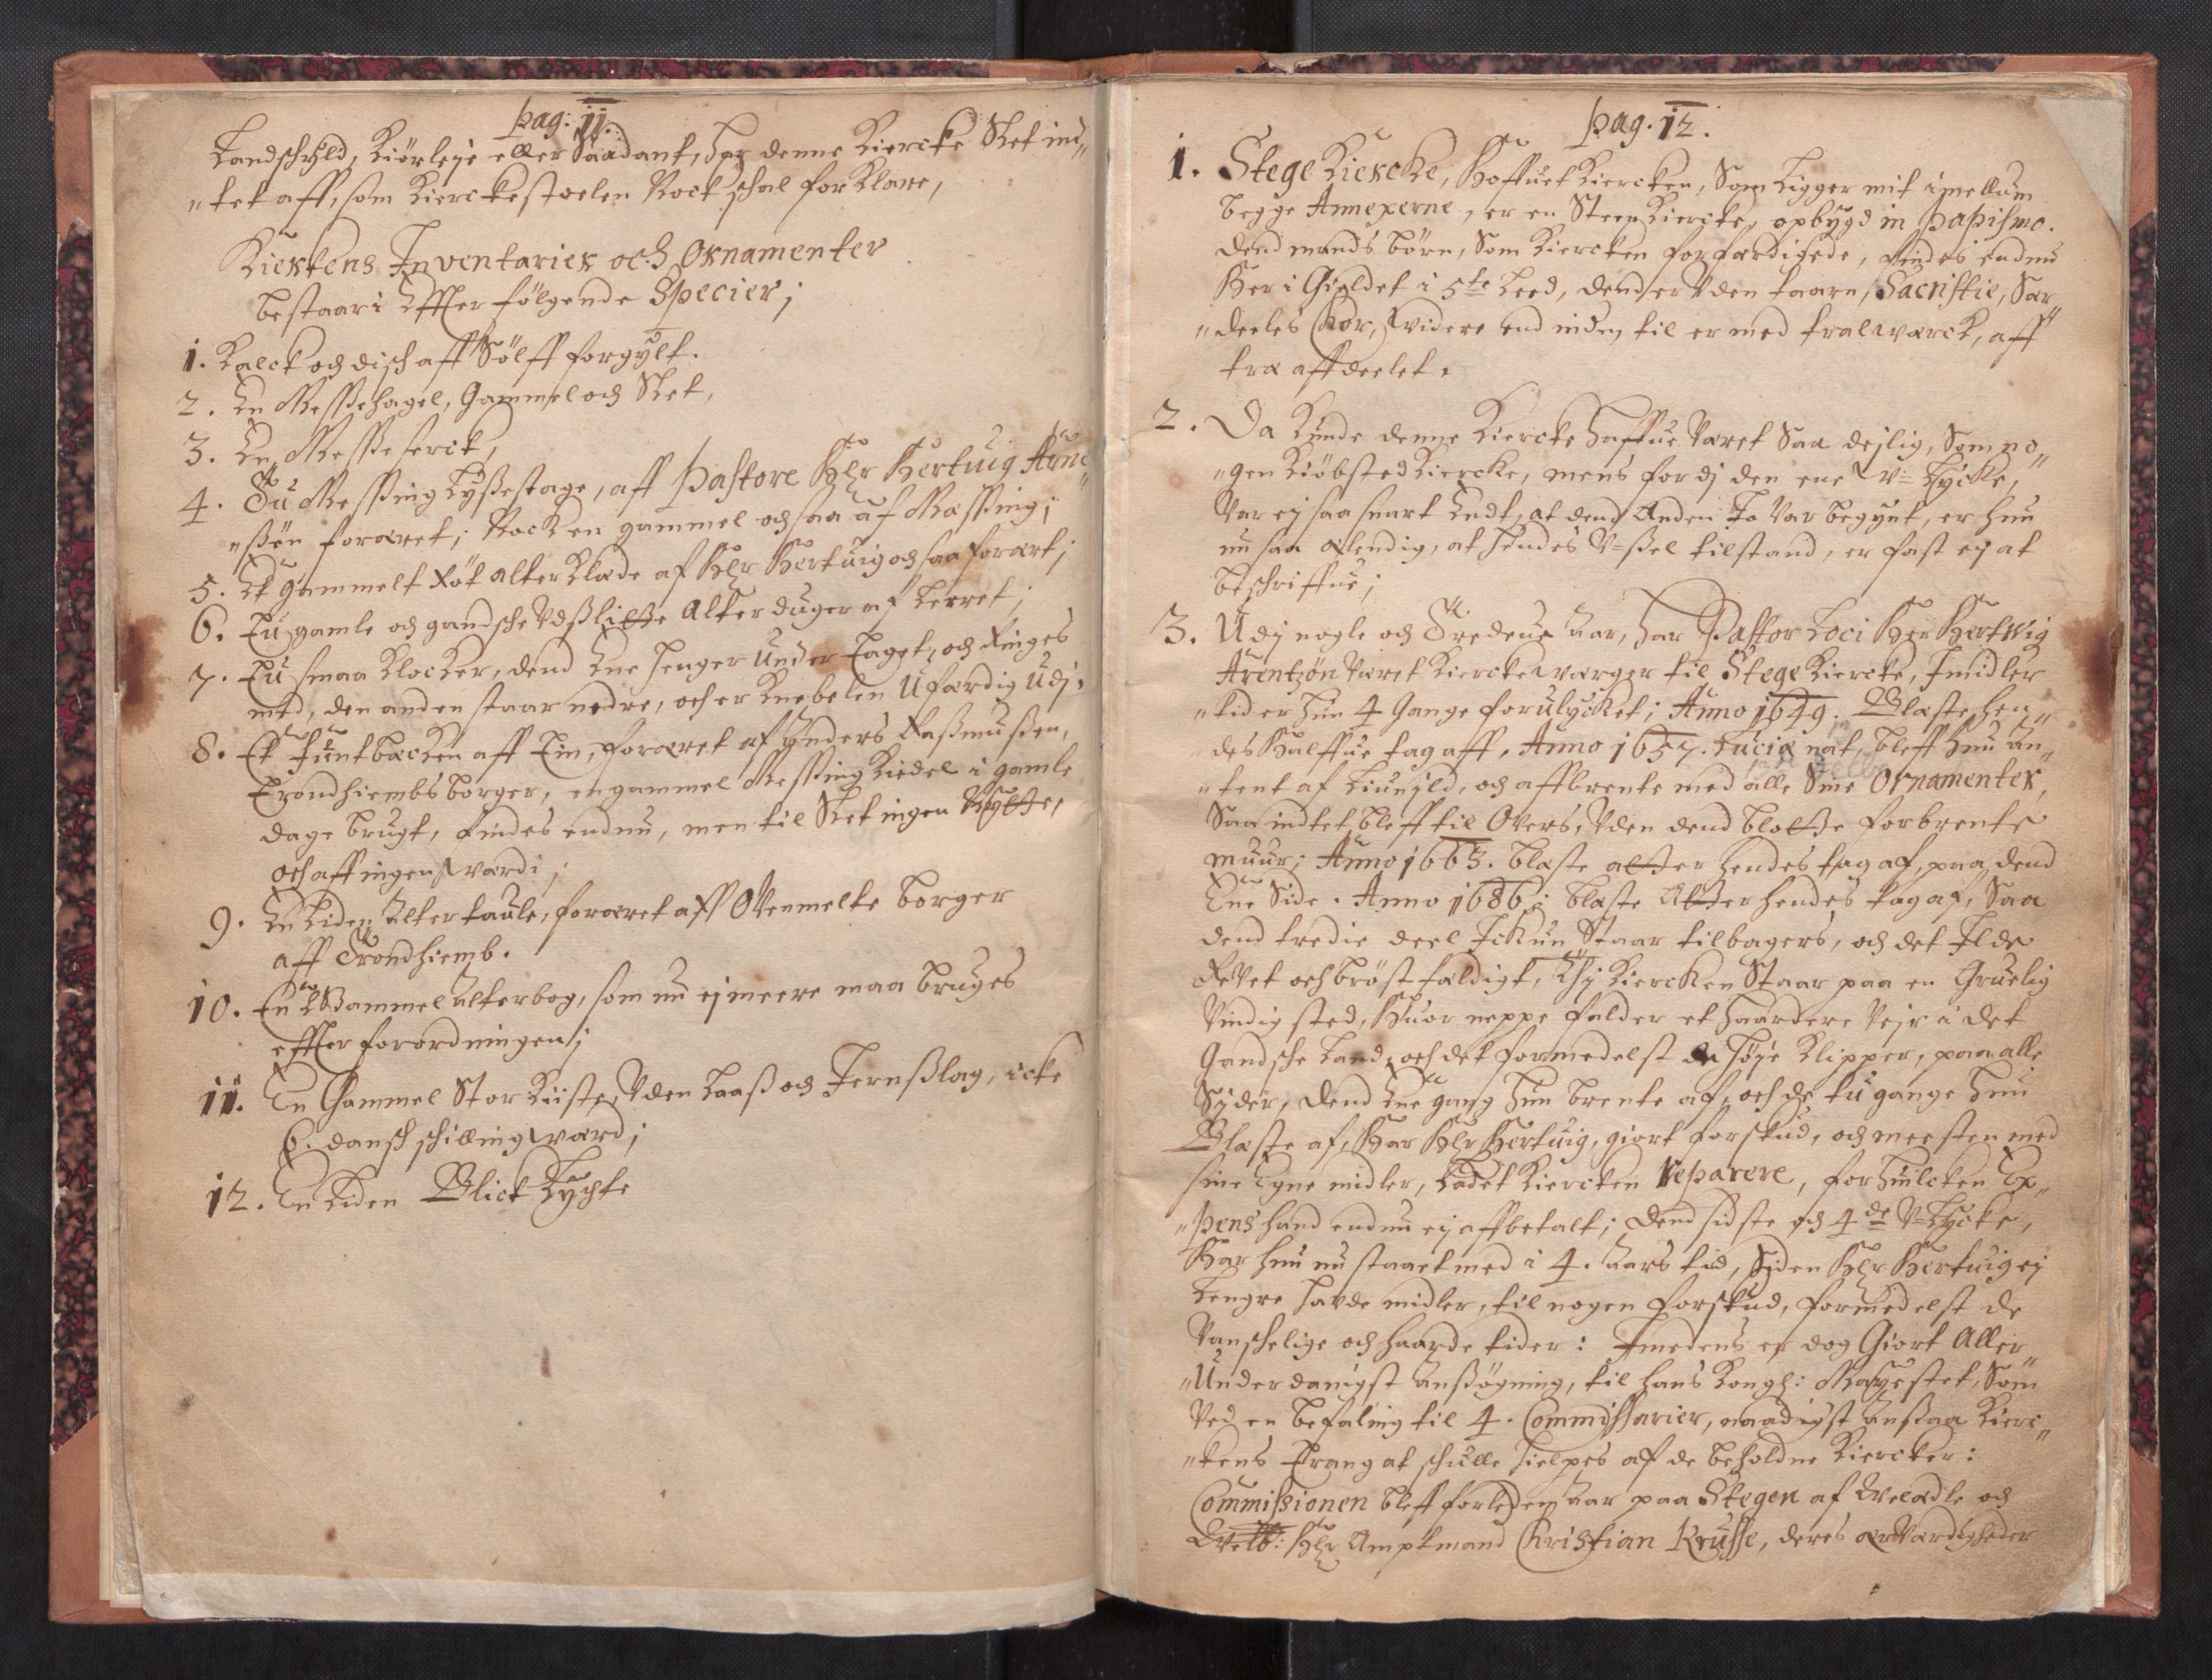 pag: 11.
Landschyld, Kiørleje eller Saadant, har denne Kiercke Slet ind„
„tet aff, som Kierckestoelen Nock schal forklare,
Kierkens Inventarier och Ornamenter
bestaar i Effterfölgende Specier;
1. Kalck och disch aff Sölff forgylt.
2. En Messehagel, Gammel och Slet,
3. En Messeserck,
4. Tu Messing Lyßestage, aff Pastore Hr Hertuig Arne„
„ßön foræret; Nock en gammel och saa af Messing;
5. Et Gammelt Röt alterklæde af Hr Hertuig och saa foræret;
6. Tu gamle och gandsche Udßlitte Alterduger af Lerret;
7. Tu smaa Klocker, dend Ene henger Under Taget, och Ringes
med, den anden staar nedre, och er Knebelen Ufærdig Udj.
8. Et Funtbæcken aff Tin, foræret af Anders Raßmußen,
Trondhiembs borger, en gammel Messing Kiedel i gamle
dage brugt, findes endnu, men til Slet ingen Nytte,
och aff ingen værdi;
9. En Liden Altertaule, foræret aff Ovenmelte borger
aff Trondhiemb.
10. En Gammel Alterbog, som nu ej meere maa bruges
effter forordningen;
11. En Gammel Stor Kiiste, Uden Laaß och Jernßlag, icke
6. dansch schilling værd;
12. En Liden Blick Lychte
pag. 12.
1. Stege Kiercke, HoffuetKiercken, Som Ligger mit imellum
begge Annexerne, er en SteenKiercke, opbygd in Papismo.
dend mands börn, Som Kiercken forfærdigede, findes endnu
her i Gieldet i 5te Leed, dend er Uden taarn, Sacristie, Sær„
„deeles Chor, widere end inden til er med tralværck, aff
træ affdeelet.
2. Da kunde denne Kiercke haffue Været Saa dejlig, Som no„
„gen KiöbstedKiercke, mens fordj den ene V=Lycke,
Var ej saa snart Endt, at dend Anden Jo Var begynt, er hun
nu saa elendig, at hendes V=ßel tilstand, er fast ej at
beschriffue;
3. Udj nogle och Tredeue Aar, har Pastor Loci Her Hertwig
Arentzön Været Kierckeværger til Stege Kiercke, Imidler„
„tid er hun 4 Gange forulycket; Anno 1649. Blæste hen„
des Halffue tag aff, Anno 1657. Luciæ nat, bleff hun An„
„tent af Liunild, och affbrente med alle Sine Ornamenter,
Saa indtet bleff til Overs, Uden dend blotte forbrente
muur; Anno 1663. blæste atter hendes tag af, paa dend
Ene Side. Anno 1686; blæste Atter hendes tag af, Saa
dend tredie deel Ickun Staar tilbagers, och det Ilde
Revet och bröstfældigt, Thj Kiercken Staar paa en Gruelig
Vindig sted, Huor neppe falder et haardere Vejr i det
Gandsche Land, och det formedelst de höje Klipper, paa alle
Syder, dend Ene gang hun brente af, och de tu gange hun
Blæste af, Har Hr Hertuig, giort forskud, och meesten med
sine Egne midler, Ladet Kiercken reparere, for huilcken Ex„
„pens hand endnu ej affbetalt; dend sidste och 4de V=Lycke,
Har hun nu staaet med i 4. Aars tid, Siden Hr Hertuig ej
Lengre havde midler, til nogen forskud, formedelst de
Vanschelige och haarde tider: Imedens er dog Giort Aller„
„Underdanigst Ansßögning, til hans Kongl: Mayestet, Som
Ved en befaling til 4. Commissarier, naadigst Ansaa Kierc„
„kens Trang at schulle hielpes af de beholdne Kiercker:
Commissionen bleff forleden Aar paa Stegen af Velædle och
Velb: Hr Amptmand Christian Kruse, deres ærværdigheder